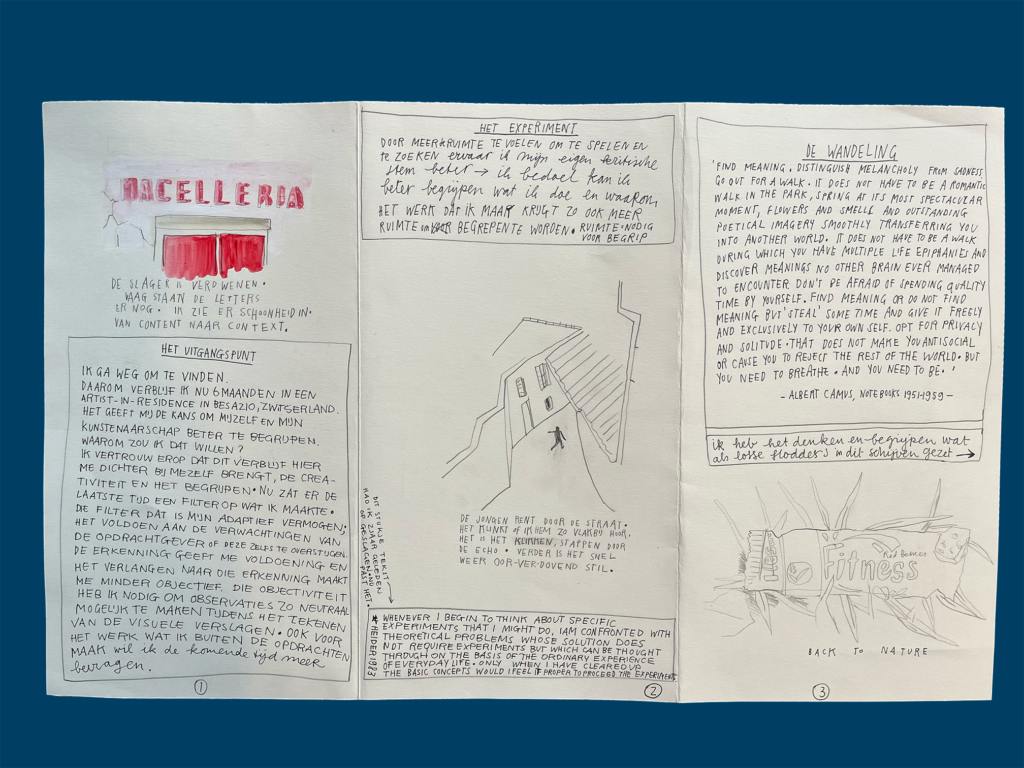 MACELLERIA
DE SLAGER IS VERDWENEN.
VAAG STAAN DE LETTERS
ER NOG. IK ZIE ER SCHOONHEID IN.
VAN CONTENT NAAR CONTEXT.
HET UITGANGSPUNT
IK GA WEG OM TE VINDEN.
DAAROM VERBLIJF IK NU 6 MAANDEN IN EEN
ARTIST-IN-RESIDENCE IN BESAZIO, ZWITSERLAND.
HET GEEFT MIJ DE KANS OM MIJZELF EN MIJN
KUNSTENAARSCHAP BETER TE BEGRIJPEN.
WAAROM ZOU IK DAT WILLEN?
IK VERTROUW EROP DAT DIT VERBLIJF HIER
ME DICHTER BIJ MEZELF BRENGT, DE CREA-
TIVITEIT EN HET BEGRIJPEN. NU ZAT ER DE
LAATSTE TIJD EEN FILTER OP WAT IK MAAKTE.
DE FILTER DAT IS MIJN ADAPTIEF VERMOGEN;
HET VOLDOEN AAN DE VERWACHTINGEN VAN
DE OPDRACHTGEVER OF DEZE ZELFS TE OVERSTIJGEN.
DE ERKENNING GEEFT ME VOLDOENING EN
HET VERLANGEN NAAR DIE ERKENNING MAAKT
ME MINDER OBJECTIEF. DIE OBJECTIVITEIT
HEB IK NODIG OM OBSERVATIES ZO NEUTRAAL
MOGELIJK TE MAKEN TIJDENS HET TEKENEN
VAN DE VISUELE VERSLAGEN. OOK VOOR
HET WERK WAT IK BUITEN DE OPDRACHTEN
MAAK wil ik de komende tijd meer
bevragen.
1
HET EXPERIMENT
DOOR MEER RUIMTE TE VOELEN OM TE SPELEN EN
te zoeken ervaar ik mijn eigen kritische
stem beter → ik bedoel kan ik
beter begrijpen wat ik doe en waarom,
HET WERK DAT IK MAAK KRIJGT ZO OOK MEER
RUIMTE om BEGREPEN TE WORDEN. RUIMTE=NODIG
VOOR BEGRIP
DE JONGEN RENT DOOR DE STRAAT.
HET KLINKT of IK HEM ZO VLAKBIJ HOOR.
HET IS HET KLIMMEN, STAPPEN DOOR
DE ECHO. VERDER IS HET SNEL
WEER OOR-VER-DOVEND STIL.
DIT STUKJE TEKST →
HAD IK 2 JAAR GELEDEN
OPGESLAGEN. NU HET
PAST.
WHENEVER I BEGIN TO THINK ABOUT SPECIFIC
EXPERIMENTS THAT I MIGHT DO, I AM CONFRONTED WITH
THEORETICAL PROBLEMS WHOSE SOLUTION DOES
NOT REQUIRE EXPERIMENTS BUT WHICH CAN BE THOUGHT
THROUGH ON THE BASIS OF THE ORDINARY EXPERIENCE
OF EVERYDAY LIFE. ONLY WHEN I HAVE CLEARED UP
THE BASIC CONCEPTS WOULD I FEEL IT PROPER TO PROCEED THE EXPERIMENT
* HEIDER 1983
2
DE WANDELING
'FIND MEANING. DISTINGUISH MELANCHOLY FROM SADNESS.
GO OUT FOR A WALK. IT DOES NOT HAVE TO BE A ROMANTIC
WALK IN THE PARK, SPRING AT IT'S MOST SPECTACULAR
MOMENT, FLOWERS AND SMELLS AND OUTSTANDING
POETICAL IMAGERY SMOOTHLY TRANSFERRING YOU
INTO ANOTHER WORLD. IT DOES NOT HAVE TO BE A WALK
DURING WHICH YOU HAVE MULTIPLE LIFE EPIPHANIES AND
DISCOVER MEANINGS NO OTHER BRAIN EVER MANAGED
TO ENCOUNTER. DON'T BE AFRAID OF SPENDING QUALITY
TIME BY YOURSELF. FIND MEANING OR DO NOT FIND
MEANING BUT 'STEAL' SOME TIME AND GIVE IT FREELY
AND EXCLUSIVELY TO YOUR OWN SELF. OPT FOR PRIVACY
AND SOLITUDE. THAT DOES NOT MAKE YOU ANTISOCIAL
OR CAUSE YOU TO REJECT THE REST OF THE WORLD. BUT
YOU NEED TO BREATHE. AND YOU NEED TO BE.'
- ALBERT CAMUS, NOTEBOOKS 1951-1959 -
ik heb het denken en begrijpen wat
als losse flodders in dit schijven gezet →
Fitness
Red Berries
BACK TO NATURE
3